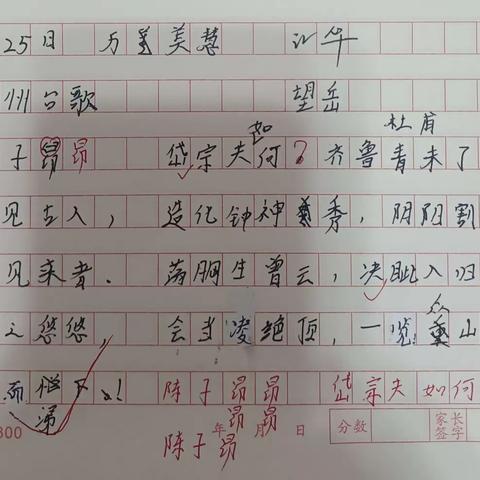 25日 万里美慧 计华
州台歌 望岳
杜甫
子昂昂 岱宗夫如何？齐鲁青未了
见古人， 造化钟神秀，阴阳割
见来者. 荡胸生曾云，决眦入归
之悠悠， 会当凌绝顶，一览众山
而 下！ 陈子昂昂 岱宗夫如何
涕 昂昂
300 年 月 日 分数 家长签字
陈子昂